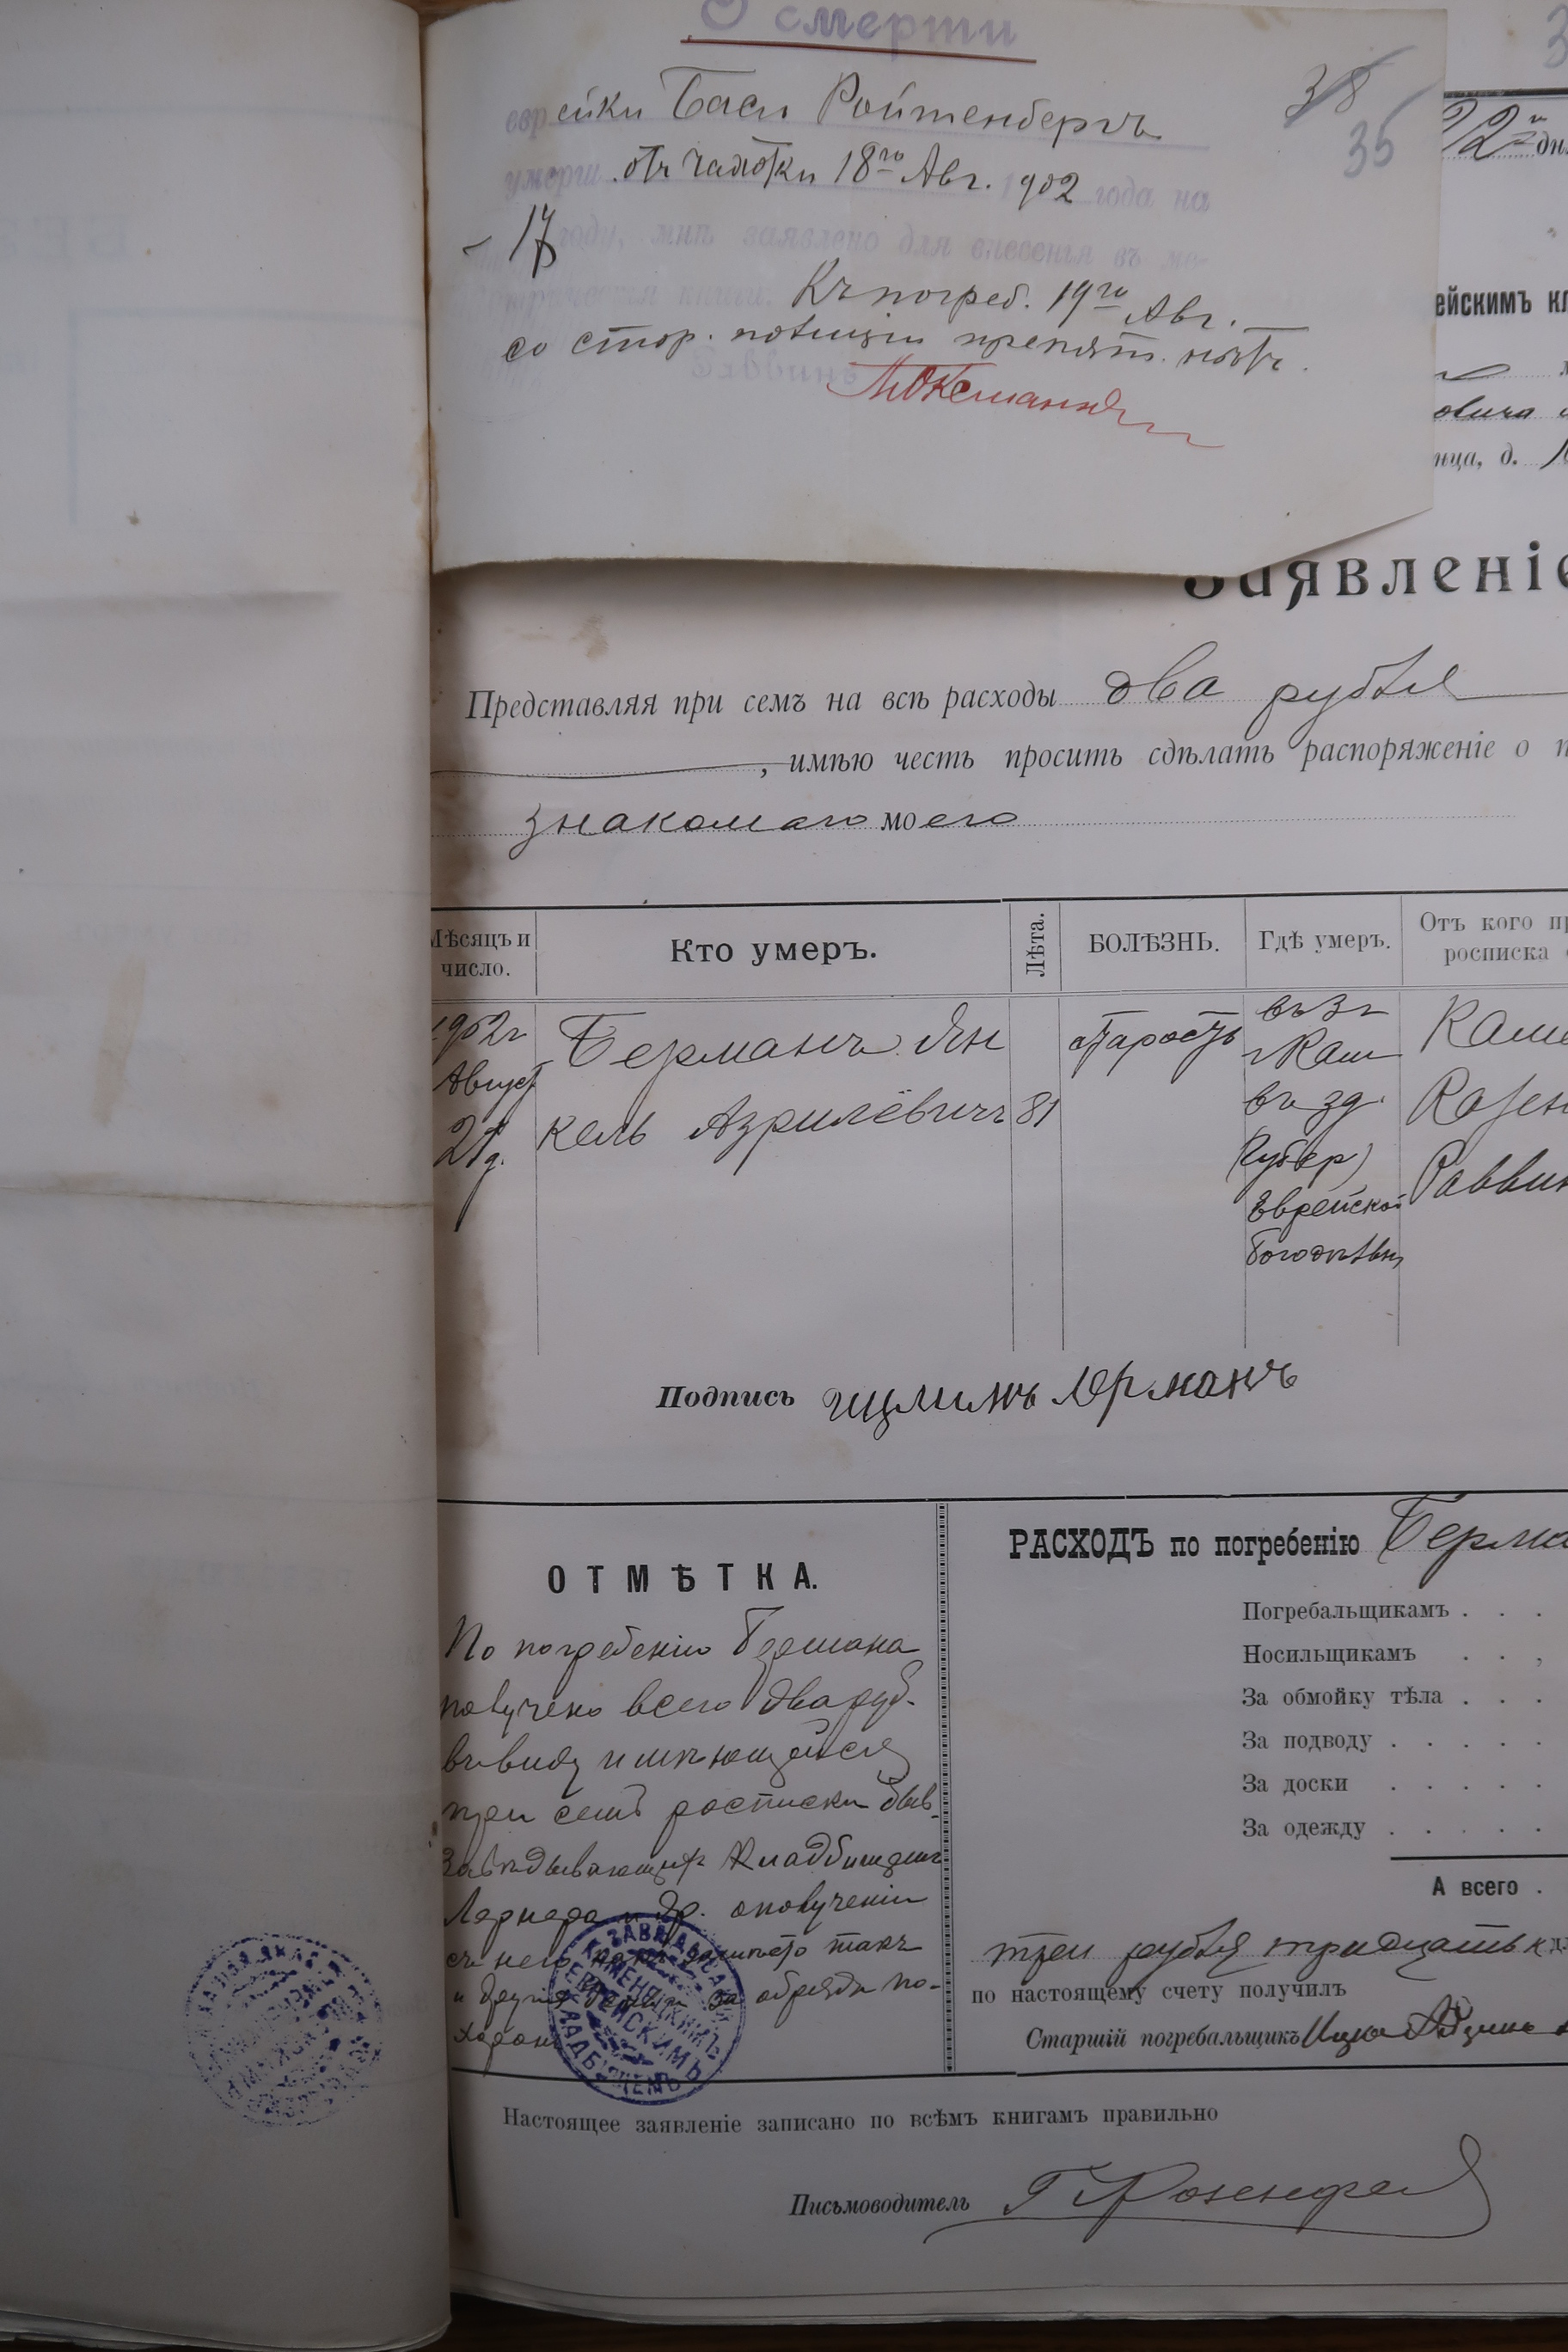 О смерти
еврейки Баси Ройтенбергъ
умерш. отъ чахотки 18го Авг. 1902 года на
17 году, мнѣ заявлено для внесенія въ ме-
трическія книги. Къ погреб. 19го Авг.
со стор. полиціи препят. нѣтъ.
38
35
22й дн
ейскимъ кл
овича
ица, д.
Заявленіе
Представляя при семъ на всѣ расходы два рубля
, имѣю честь просить сдѣлать распоряженіе о п
знакомаго моего
Мѣсяцъ и число.
Кто умеръ.
Лѣта.
БОЛѢЗНЬ.
Гдѣ умеръ.
Отъ кого пр
росписка
1902г
Август
21 д.
Берманъ Ян
кель Азрилевичъ
81
старость
въ зг
г Кам
въ зд.
(Губер)
Еврейской
богодѣльн
Каме
Раввин
Подпись Ицликъ Лерманъ
ОТМѢТКА.
По погребенію Бермана
получено всего два руб.
въ виду имѣющейся
при семъ росписки быв.
Завѣдывающ. Кладбищемъ
Лернера и др. о полученіи
съ него такъ
и другія за обряды по-
хорон
ЗАВѢДЫВАЮЩІЙ КАМЕНЕЦКИМЪ ЕВРЕЙСКИМЪ КЛАДБИЩЕМЪ
РАСХОДЪ по погребенію Берма
Погребальщикамъ . . .
Носильщикамъ . . ,
За обмойку тѣла . . .
За подводу . . . . .
За доски . . . . .
За одежду . . . . .
А всего .
три рубля тридцать к
по настоящему счету получилъ
Старшій погребальщикъ Ицко
Настоящее заявленіе записано по всѣмъ книгамъ правильно
Письмоводитель Г Розенфел